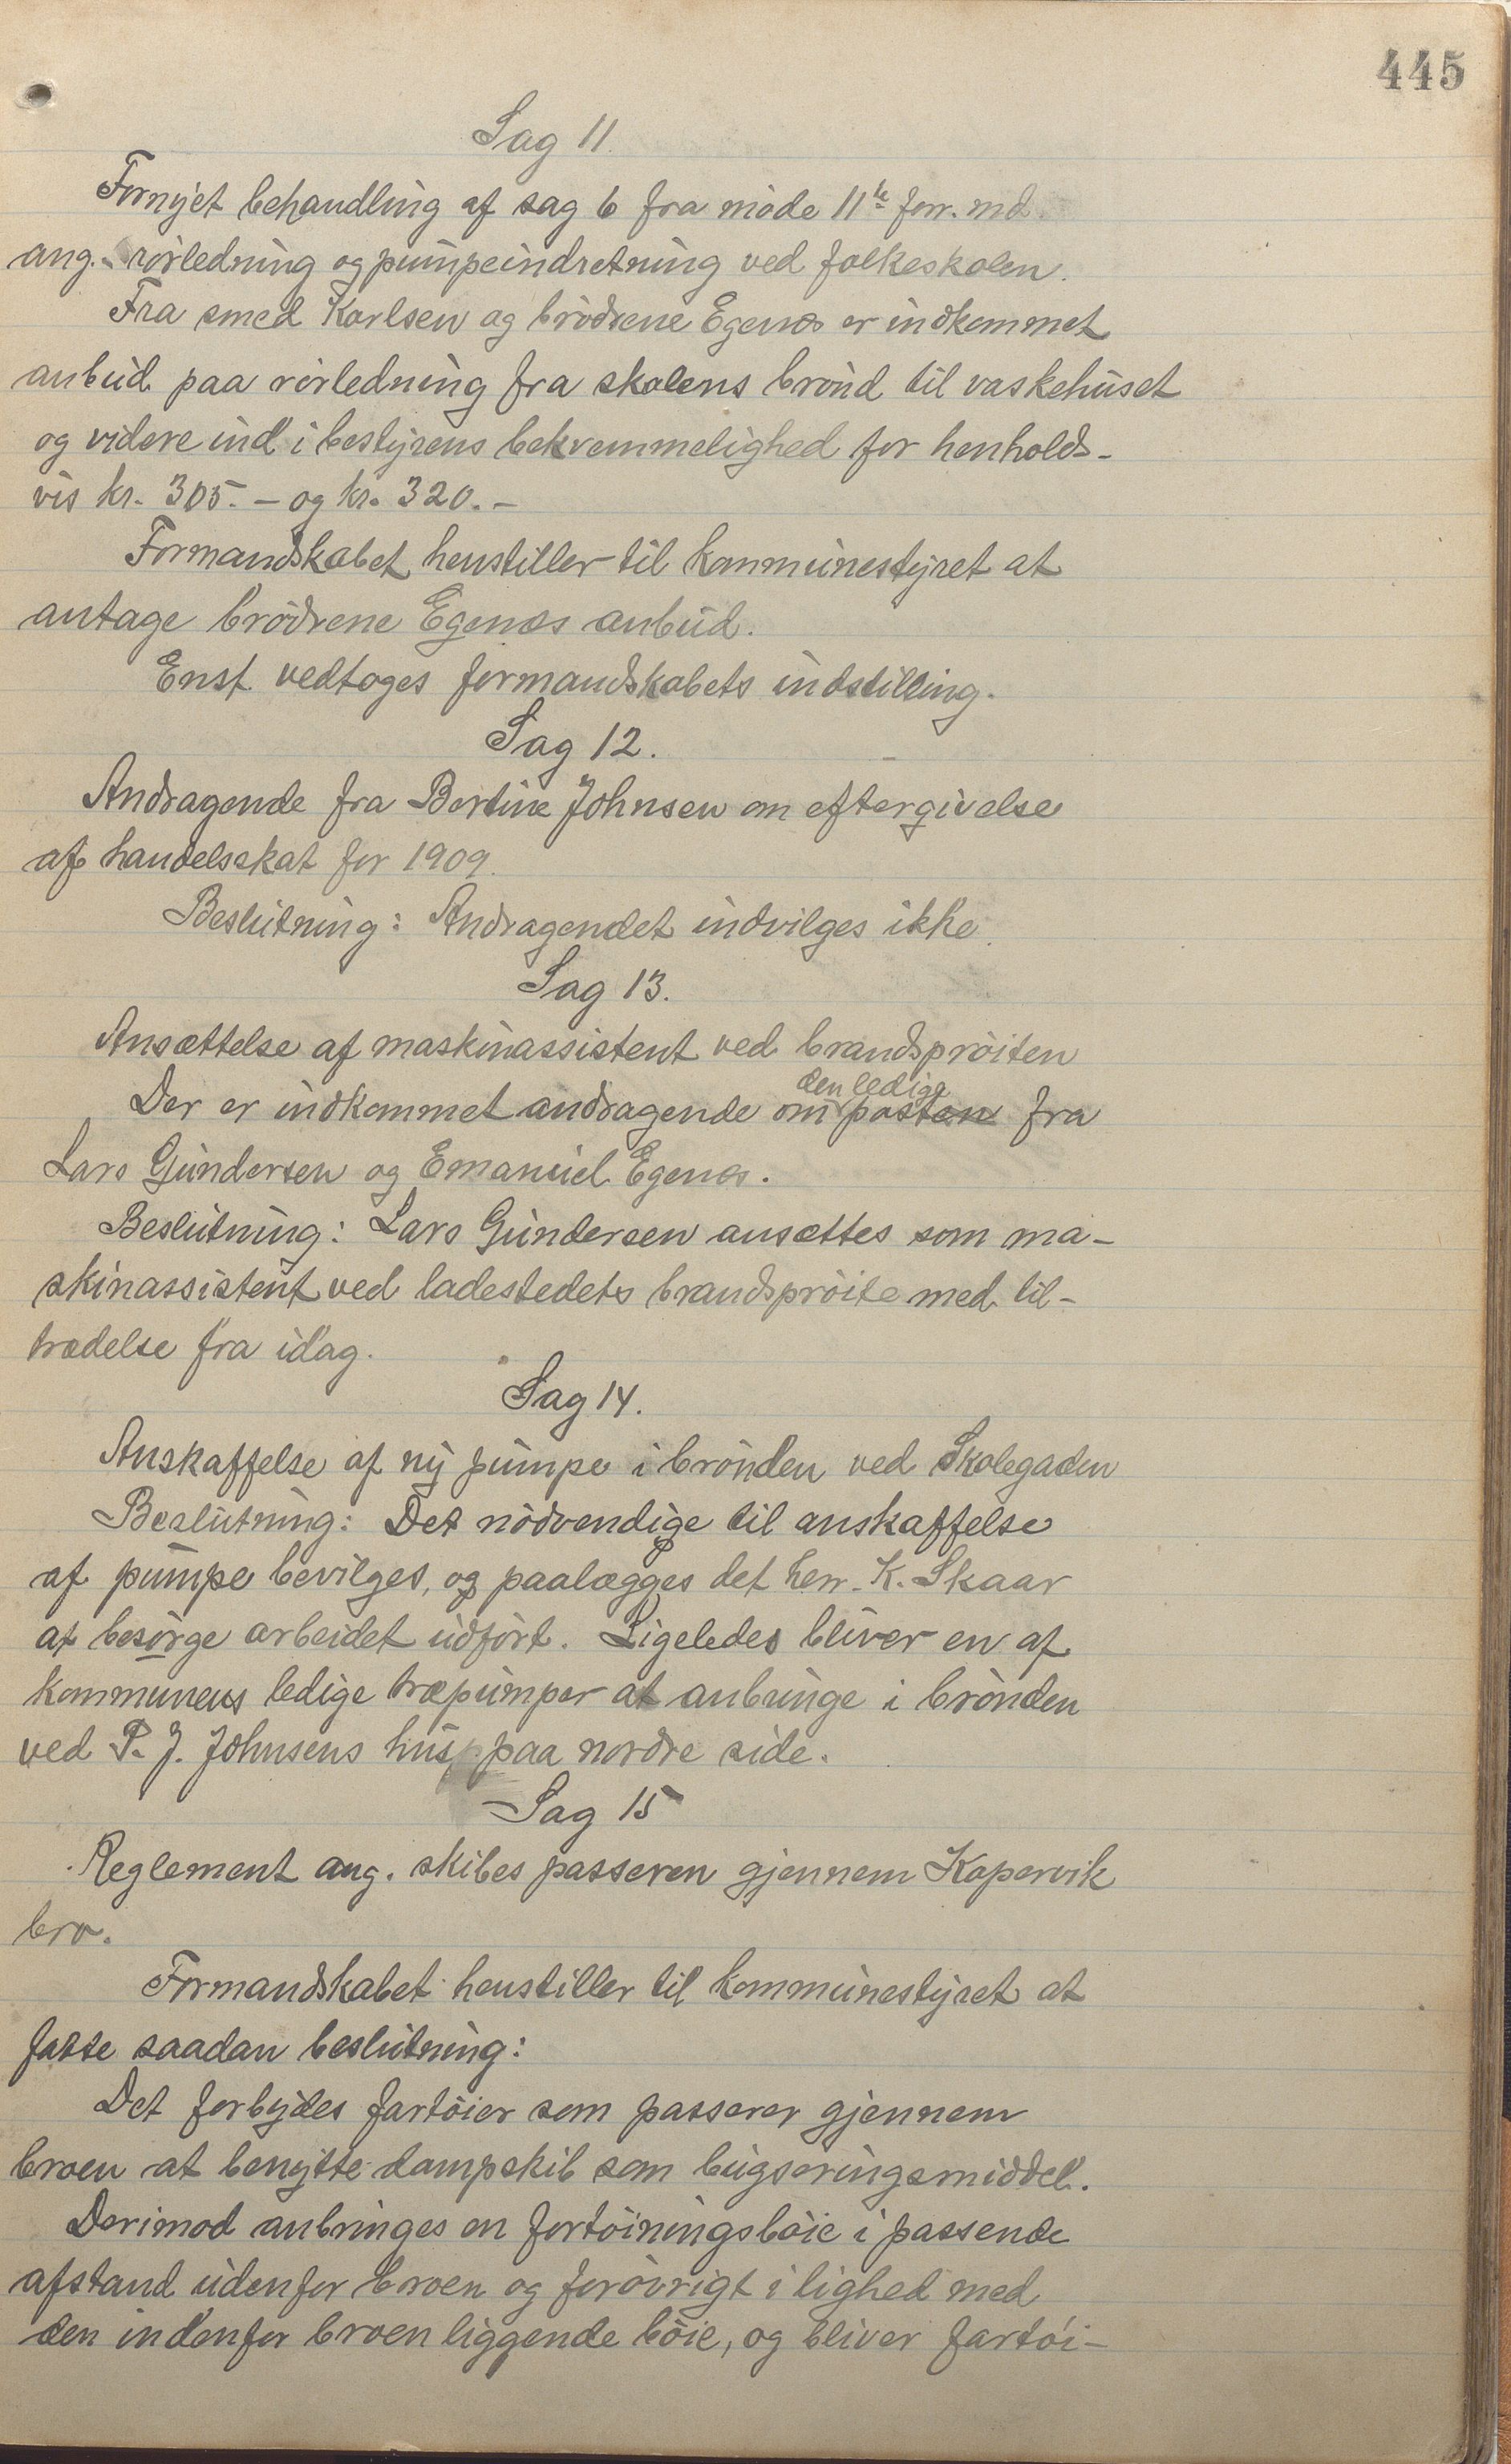 445
Sag 11.
Fornyet behandling af sag 6 fra møde 11te forr. md
ang. rørledning og pumpeindretning ved folkeskolen.
Fra smed Karlsen og brødrene Egenæs er indkommet
anbud paa rørledning fra skolens brønd til vaskehuset
og videre ind i bestyrens bekvemmelighed for henholds-
vis kr. 305.- og kr. 320.-
Formandskabet henstiller til kommunestyret at
antage brødrene Egenæs anbud.
Enst. vedtoges formandskabets indstilling.
Sag 12.
Andragende fra Bertine Johnsen om eftergivelse
af handelsskat for 1909.
Beslutning: Andragendet indvilges ikke.
Sag 13.
Ansættelse af maskinassistent ved brandsprøiten
den ledige
Der er indkommet andragende om posten fra
Lars Gundersen og Emanuel Egenæs.
Beslutning: Lars Gundersen ansættes som ma-
skinassistent ved ladestedets brandsprøite med til-
trædelse fra idag.
Sag 14.
Anskaffelse af ny pumpe i brønden ved Skolegaden
Beslutning: Det nødvendige til anskaffelse
af pumpe bevilges, og paalægges det herr K. Skaar
at besørge arbeidet udført. Ligeledes bliver en af
kommunens ledige træpumper at anbringe i brønden
ved P. J. Johnsens hus paa nordre side.
Sag 15
Reglement ang. skibes passeren gjennem Kopervik
bro.
Formandskabet henstiller til kommunestyret at
fatte saadan beslutning:
Det forbydes fartøier som passerer gjennem
broen at benytte dampskib som bugseringsmiddel.
Derimod anbringes en fortøiningsbøie i passende
afstand udenfor broen og forøvrigt i lighed med
den indenfor broen liggende bøie, og bliver fartøi-